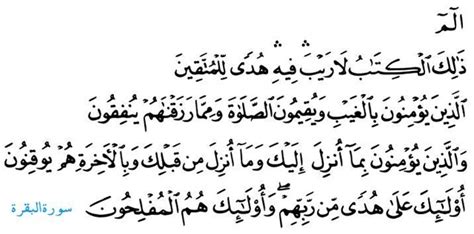 الٓمٓ
ذَٰلِكَ ٱلْكِتَـٰبُ لَا رَيْبَ ۛ فِيهِ ۛ هُدًى لِّلْمُتَّقِينَ
ٱلَّذِينَ يُؤْمِنُونَ بِٱلْغَيْبِ وَيُقِيمُونَ ٱلصَّلَوٰةَ وَمِمَّا رَزَقْنَـٰهُمْ يُنفِقُونَ
وَٱلَّذِينَ يُؤْمِنُونَ بِمَآ أُنزِلَ إِلَيْكَ وَمَآ أُنزِلَ مِن قَبْلِكَ وَبِٱلْـَٔاخِرَةِ هُمْ يُوقِنُونَ
أُو۟لَـٰٓئِكَ عَلَىٰ هُدًى مِّن رَّبِّهِمْ ۖ وَأُو۟لَـٰٓئِكَ هُمُ ٱلْمُفْلِحُونَ سورة البقرة